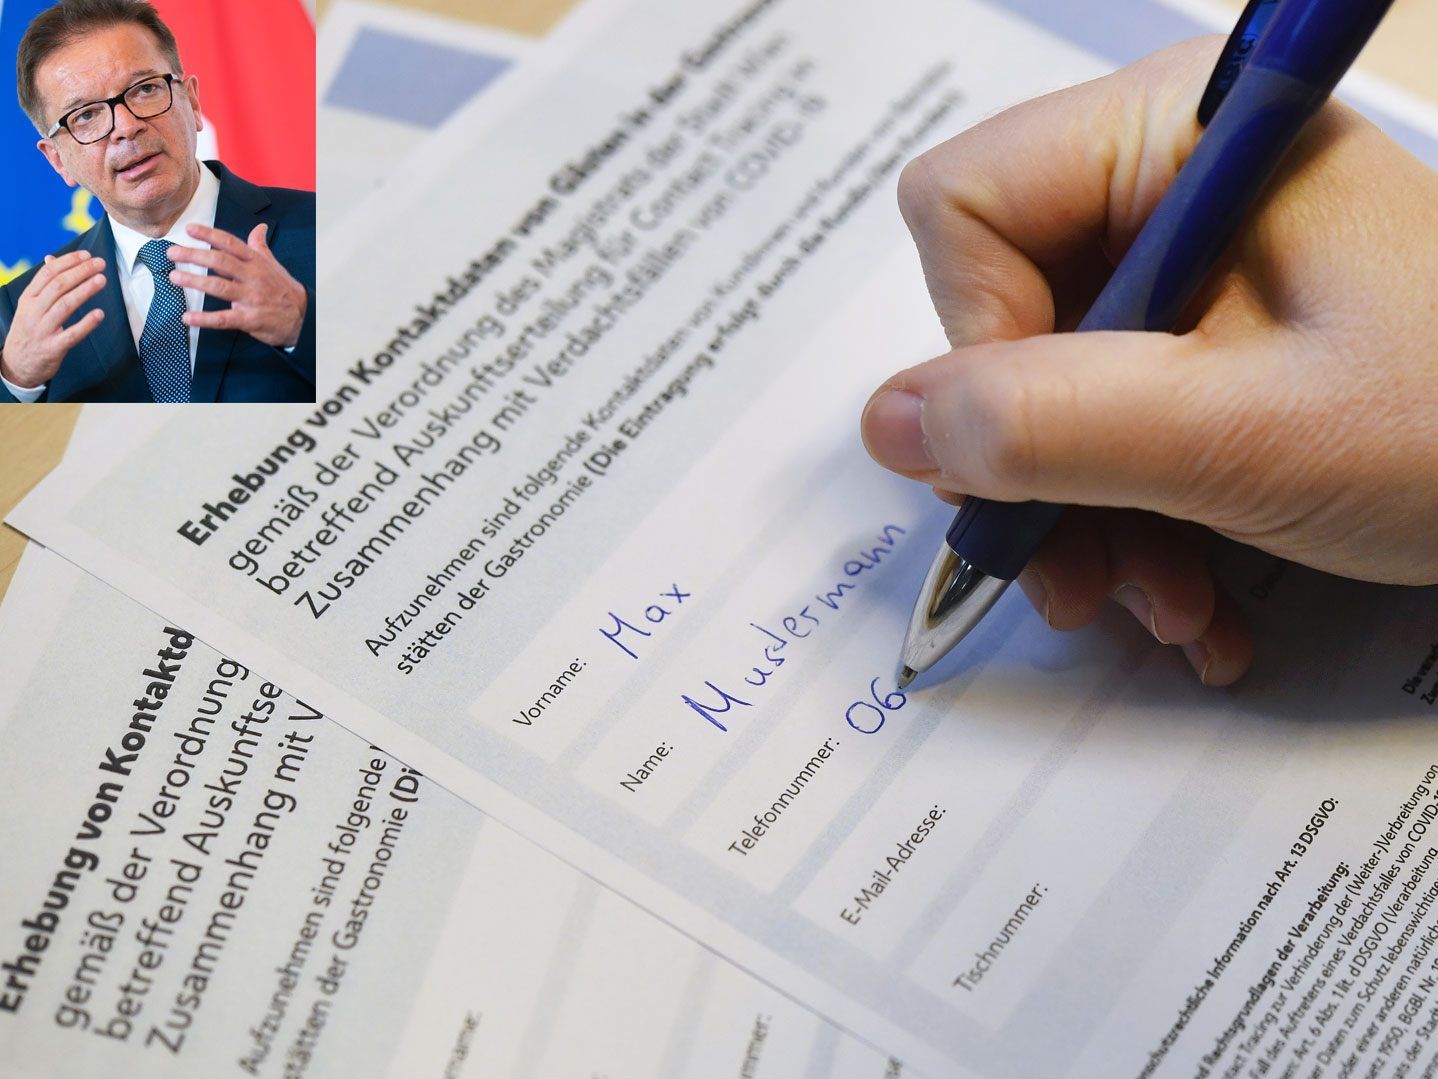 Erhebung von Kontaktdaten von Gästen in der
gemäß der Verordnung des Magistrats der Stadt Wien
betreffend Auskunftserteilung für Contact Tracing in
Zusammenhang mit Verdachtsfällen von COVID-19
Aufzunehmen sind folgende Kontaktdaten von Kundinnen und Kunden von
stätten der Gastronomie (Die Eintragung erfolgt durch die Kundin/den Kunden)
Vorname: Max
Name: Mustermann
Telefonnummer: 06
E-Mail-Adresse:
Tischnummer:
Information nach Art. 13 DSGVO:
Rechtsgrundlagen der Verarbeitung:
Tracing zur Verhinderung der (Weiter-)Verbreitung von
Fall des Auftretens eines Verdachtsfalles von COVID-19
Art. 6 Abs. 1 lit. d DSGVO (Verarbeitung
Daten zum Schutz lebenswichtiger
oder einer anderen
1950, BGBl. Nr.
der Stadt
Erhebung von Kontaktd
gemäß der Verordnung
betreffend Auskunftse
Zusammenhang mit V
Aufzunehmen sind folgende
stätten der Gastronomie (Di